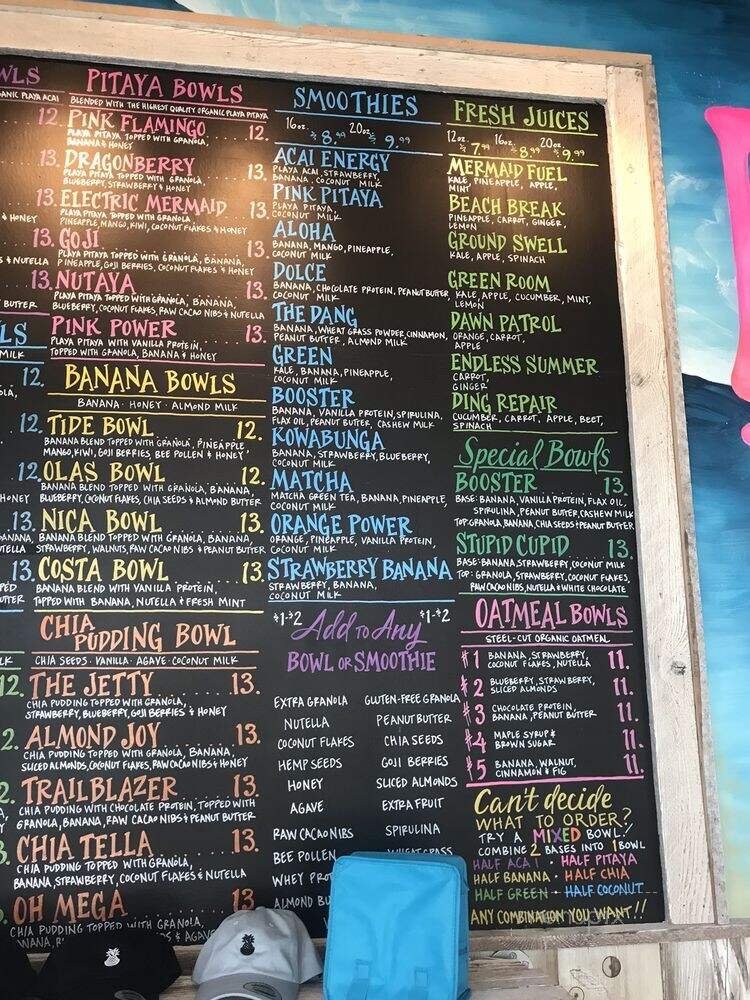 WLS
ANIC PLAYA ACAI
12.
13.
13.
& HONEY
13.
& NUTELLA
13.
BUTTER
LS
MILK
12.
OLA,
12.
12.
HONEY
13.
NUTELLA
13.
BUTTER
LK
12.
2.
2.
3.
PITAYA BOWLS
BLENDED WITH THE HIGHEST QUALITY ORGANIC PLAYA PITAYA
PINK FLAMINGO 12.
PLAYA PITAYA TOPPED WITH GRANOLA,
BANANA & HONEY
DRAGONBERRY 13.
PLAYA PITAYA TOPPED WITH GRANOLA,
BLUEBERRY, STRAWBERRY & HONEY
ELECTRIC MERMAID 13.
PLAYA PITAYA TOPPED WITH GRANOLA,
PINEAPPLE, MANGO, KIWI, COCONUT FLAKES & HONEY
GOJI 13.
PLAYA PITAYA TOPPED WITH GRANOLA, BANANA,
PINEAPPLE, GOJI BERRIES, COCONUT FLAKES & HONEY
NUTAYA 13.
PLAYA PITAYA TOPPED WITH GRANOLA, BANANA,
BLUEBERRY, COCONUT FLAKES, RAW CACAO NIBS & NUTELLA
PINK POWER 13.
PLAYA PITAYA WITH VANILLA PROTEIN,
TOPPED WITH GRANOLA, BANANA & HONEY
BANANA BOWLS
BANANA · HONEY · ALMOND MILK
TIDE BOWL 12.
BANANA BLEND TOPPED WITH GRANOLA, PINEAPPLE
MANGO, KIWI, GOJI BERRIES, BEE POLLEN & HONEY
OLAS BOWL 12.
BANANA BLEND TOPPED WITH GRANOLA, BANANA,
BLUEBERRY, COCONUT FLAKES, CHIA SEEDS & ALMOND BUTTER
NICA BOWL 13.
BANANA BLEND TOPPED WITH GRANOLA, BANANA,
STRAWBERRY, WALNUTS, RAW CACAO NIBS & PEANUT BUTTER
COSTA BOWL 13.
BANANA BLEND WITH VANILLA PROTEIN,
TOPPED WITH BANANA, NUTELLA & FRESH MINT
CHIA
PUDDING BOWL
CHIA SEEDS · VANILLA · AGAVE · COCONUT MILK
THE JETTY 13.
CHIA PUDDING TOPPED WITH GRANOLA,
STRAWBERRY, BLUEBERRY, GOJI BERRIES & HONEY
ALMOND JOY 13.
CHIA PUDDING TOPPED WITH GRANOLA, BANANA,
SLICED ALMONDS, COCONUT FLAKES, RAW CACAO NIBS & HONEY
TRAILBLAZER 13.
CHIA PUDDING WITH CHOCOLATE PROTEIN, TOPPED WITH
GRANOLA, BANANA, RAW CACAO NIBS & PEANUT BUTTER
CHIA TELLA 13.
CHIA PUDDING TOPPED WITH GRANOLA,
BANANA, STRAWBERRY, COCONUT FLAKES & NUTELLA
OH MEGA 13.
CHIA PUDDING TOPPED WITH GRANOLA,
& AGAVE
SMOOTHIES
16oz. 8.99 20oz. 9.99
ACAI ENERGY
PLAYA ACAI, STRAWBERRY,
BANANA, COCONUT MILK
PINK PITAYA
PLAYA PITAYA,
COCONUT MILK
ALOHA
BANANA, MANGO, PINEAPPLE,
COCONUT MILK
DOLCE
BANANA, CHOCOLATE PROTEIN, PEANUT BUTTER,
COCONUT MILK
THE DANG
BANANA, WHEAT GRASS POWDER, CINNAMON,
PEANUT BUTTER, ALMOND MILK
GREEN
KALE, BANANA, PINEAPPLE,
COCONUT MILK
BOOSTER
BANANA, VANILLA PROTEIN, SPIRULINA,
FLAX OIL, PEANUT BUTTER, CASHEW MILK
KOWABUNGA
BANANA, STRAWBERRY, BLUEBERRY,
COCONUT MILK
MATCHA
MATCHA GREEN TEA, BANANA, PINEAPPLE,
COCONUT MILK
ORANGE POWER
ORANGE, PINEAPPLE, VANILLA PROTEIN,
COCONUT MILK
STRAWBERRY BANANA
STRAWBERRY, BANANA,
COCONUT MILK
$1-$2 Add To Any $1-$2
BOWL OR SMOOTHIE
EXTRA GRANOLA GLUTEN-FREE GRANOLA
NUTELLA PEANUT BUTTER
COCONUT FLAKES CHIA SEEDS
HEMP SEEDS GOJI BERRIES
HONEY SLICED ALMONDS
AGAVE EXTRA FRUIT
RAW CACAO NIBS SPIRULINA
BEE POLLEN WHEATGRASS
WHEY
ALMOND
FRESH JUICES
12oz. 7.99 16oz. 8.99 20oz. 9.99
MERMAID FUEL
KALE, PINEAPPLE, APPLE,
MINT
BEACH BREAK
PINEAPPLE, CARROT, GINGER,
LEMON
GROUND SWELL
KALE, APPLE, SPINACH
GREEN ROOM
KALE, APPLE, CUCUMBER, MINT,
LEMON
DAWN PATROL
ORANGE, CARROT,
APPLE
ENDLESS SUMMER
CARROT,
GINGER
DING REPAIR
CUCUMBER, CARROT, APPLE, BEET,
SPINACH
Special Bowls
BOOSTER 13.
BASE: BANANA, VANILLA PROTEIN, FLAX OIL,
SPIRULINA, PEANUT BUTTER, CASHEW MILK
TOP: GRANOLA, BANANA, CHIA SEEDS & PEANUT BUTTER
STUPID CUPID 13.
BASE: BANANA, STRAWBERRY, COCONUT MILK
TOP: GRANOLA, STRAWBERRY, COCONUT FLAKES,
RAW CACAO NIBS, NUTELLA & WHITE CHOCOLATE
OATMEAL BOWLS
STEEL-CUT ORGANIC OATMEAL
#1 BANANA, STRAWBERRY, 11.
COCONUT FLAKES, NUTELLA
#2 BLUEBERRY, STRAWBERRY, 11.
SLICED ALMONDS
#3 CHOCOLATE PROTEIN, 11.
BANANA, PEANUT BUTTER
#4 MAPLE SYRUP & 11.
BROWN SUGAR
#5 BANANA, WALNUT, 11.
CINNAMON & FIG
Can't decide
WHAT TO ORDER?
TRY A MIXED BOWL!
COMBINE 2 BASES INTO 1 BOWL
HALF ACAI · HALF PITAYA
HALF BANANA · HALF CHIA
HALF GREEN · HALF COCONUT
ANY COMBINATION YOU WANT!!